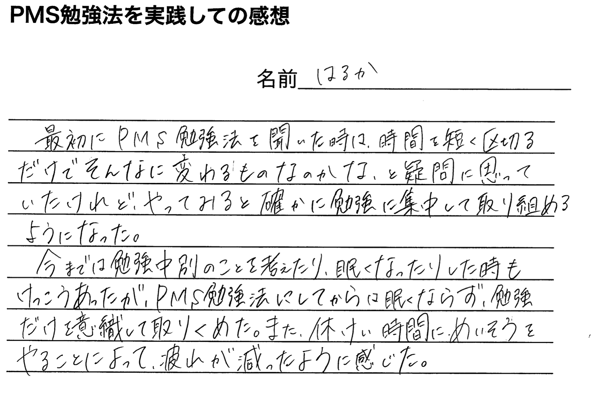 PMS勉強法を実践しての感想
名前 はるか
最初にPMS勉強法を聞いた時は、時間を短く区切る
だけでそんなに変わるものなのかな、と疑問に思って
いたけれど、やってみると確かに勉強に集中して取り組める
ようになった。
今までは勉強中別のことを考えたり、眠くなったりした時も
けっこうあったが、PMS勉強法にしてからは眠くならず、勉強
だけを意織して取りくめた。また、休けい時間に、めいそうを
やることによって、疲れが減ったように感じた。